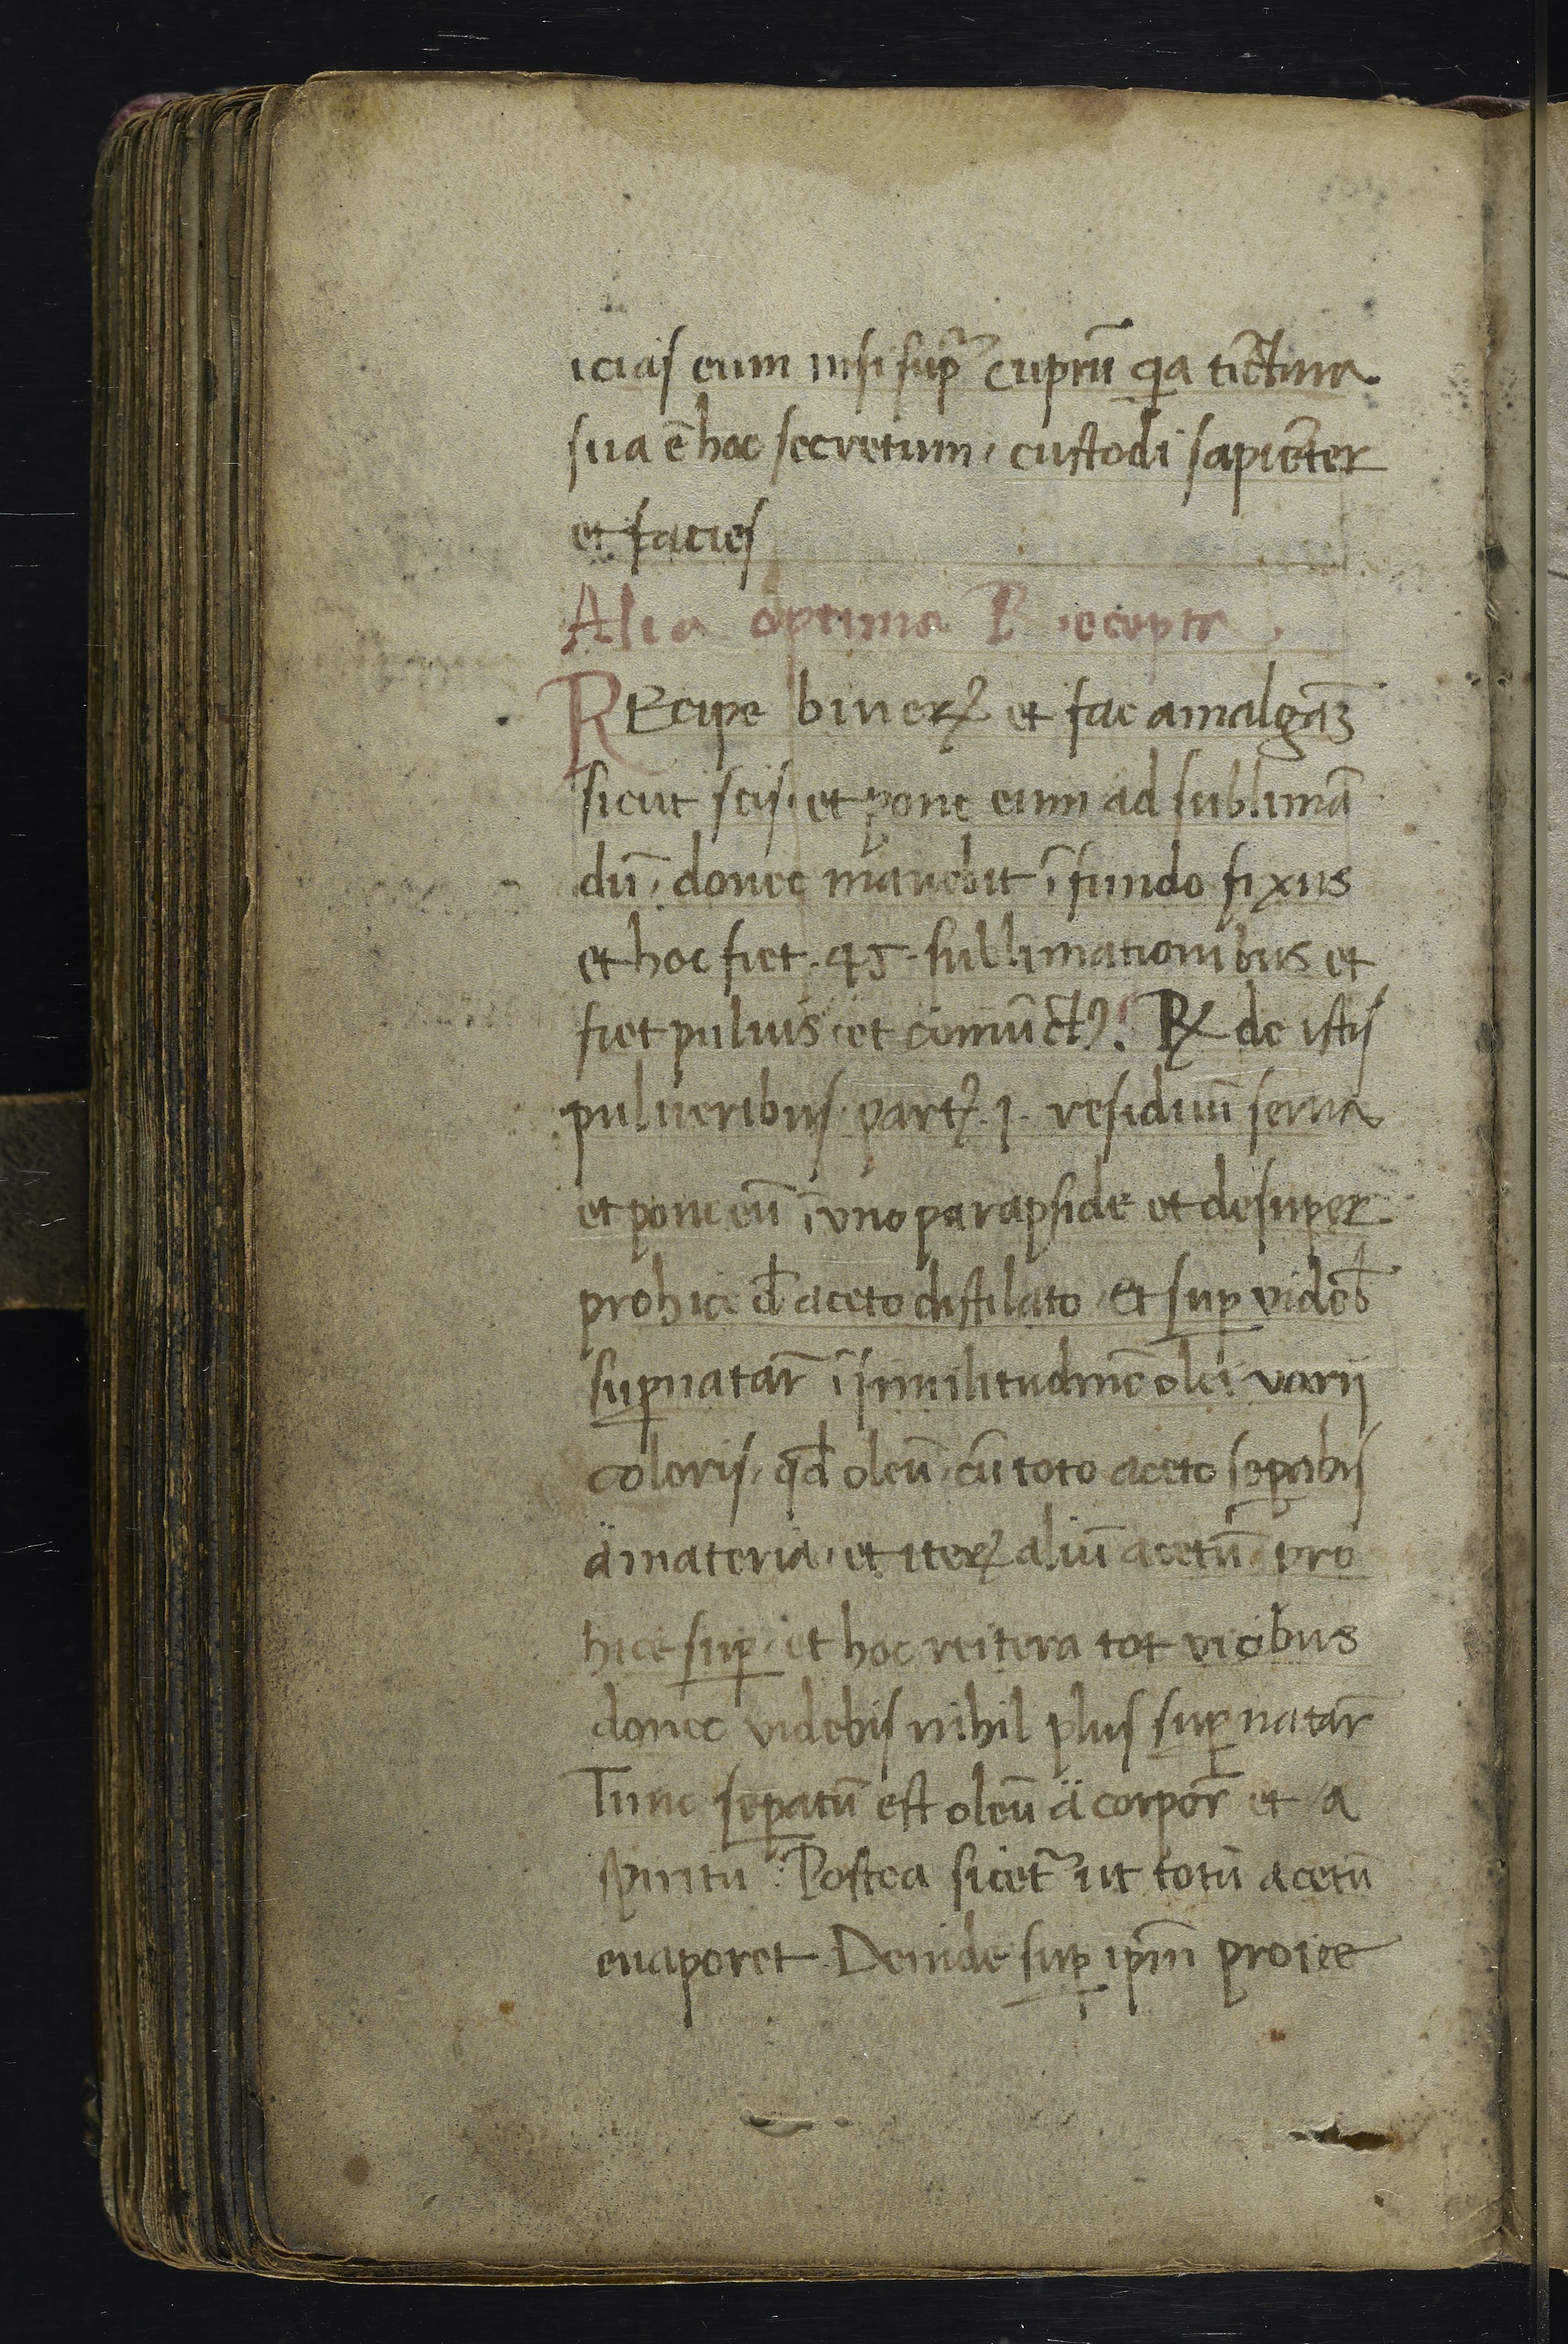 iciaſ eum niſi ſup̃ cuprũ q̇a tĩctura
ſua ẽ hoc ſecretum, cuſtodi ſapiẽter
et facieſ
Alia optima Recepta.
REcipe biuerꝝ et fac amalgãꝫ
ſicut ſciſ, et pone eum ad ſublimã
dũ, donec manebit ĩ fundo fixus
et hoc fiet .45. ſublimationibus et
fiet puluis et Rꝝ de iſtiſ
pulueribuſ partꝝ .j. reſiduũ ſerua
et pone eũ ĩ vno parapſide et deſuper
prohice đ aceto diſtilato, et ſuꝑ videƀ
ſuꝑnatar̃ ĩ ſimilitudinẽ olei varij
coloriſ, qđ oleũ, cũ toto aceto ſeꝑabiſ
ä materia, et iterꝝ aliũ acetũ pro
hice ſuꝑ, et hoc reitera tot vicibus
donec videbiſ nihil pluſ ſuꝑnatar̃
Tunc ſeꝑatũ eſt oleũ ä corpor̃ et a
ſpiritu. Poſtea ſicet᷑ ut totũ acetũ
euaporet. Deinde ſuꝑ ipm̃ proice